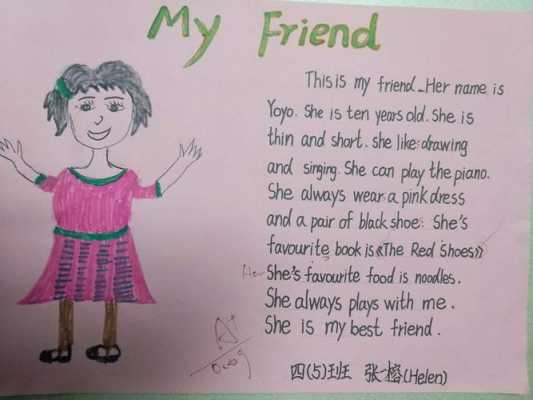 My Friend
This is my friend. Her name is
Yoyo. She is ten years old. She is
thin and short. she like drawing
and singing. She can play the piano.
She always wear a pink dress
and a pair of black shoe. She's
favourite book is《The Red Shoes》
Her She's favourite food is noodles.
She always plays with me.
She is my best friend.
A+
四(5)班 张榕(Helen)